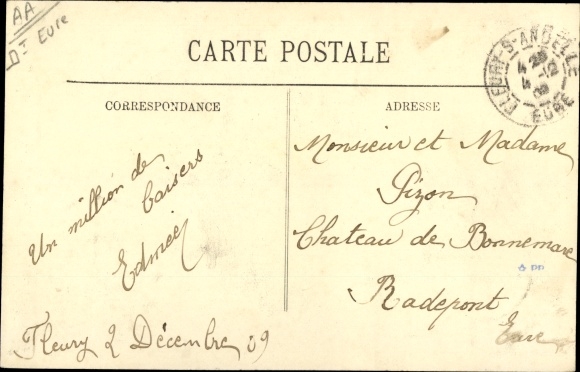 AA
Dt Eure
CARTE POSTALE
FLEURY-S-ANDELLE
EURE
CORRESPONDANCE
ADRESSE
Un million de
baisers
Edmée
Fleury 2 Décembre 09
Monsieur et Madame
Pizon
Chateau de Bonnemare
Radepont
Eure